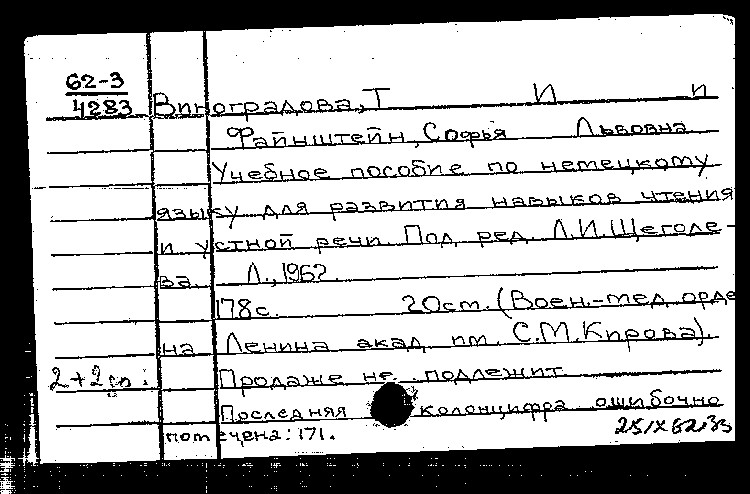 62-3
4283
Виноградова, Т И и
Файнштейн, Софья Львовна
Учебное пособие по немецкому
языку для развития навыков чтения
и устной речи. Под ред. Л.И. Щеголе-
ва. Л., 1962.
178с. 20см. (Воен.-мед. орде
на Ленина акад. им. С.М. Кирова).
2+2
Продаже не подлежит
Последняя колонцифра ошибочно
помечена: 171.